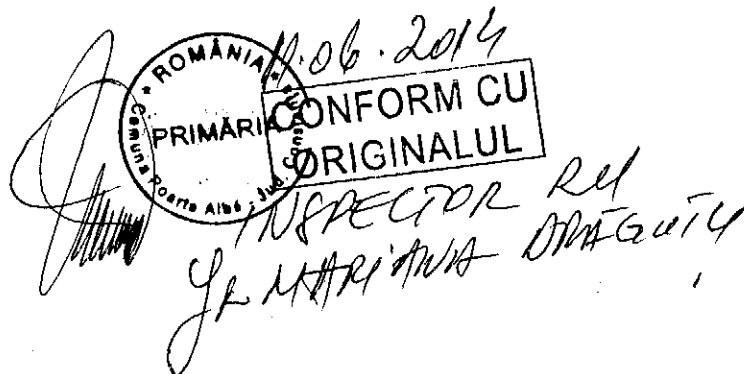 11.06.2014
* ROMÂNIA *
PRIMĂRIA
Comuna Poarta Albă - Jud.
CONFORM CU
ORIGINALUL
INSPECTOR RU
MARIANA DRĂGUȚU